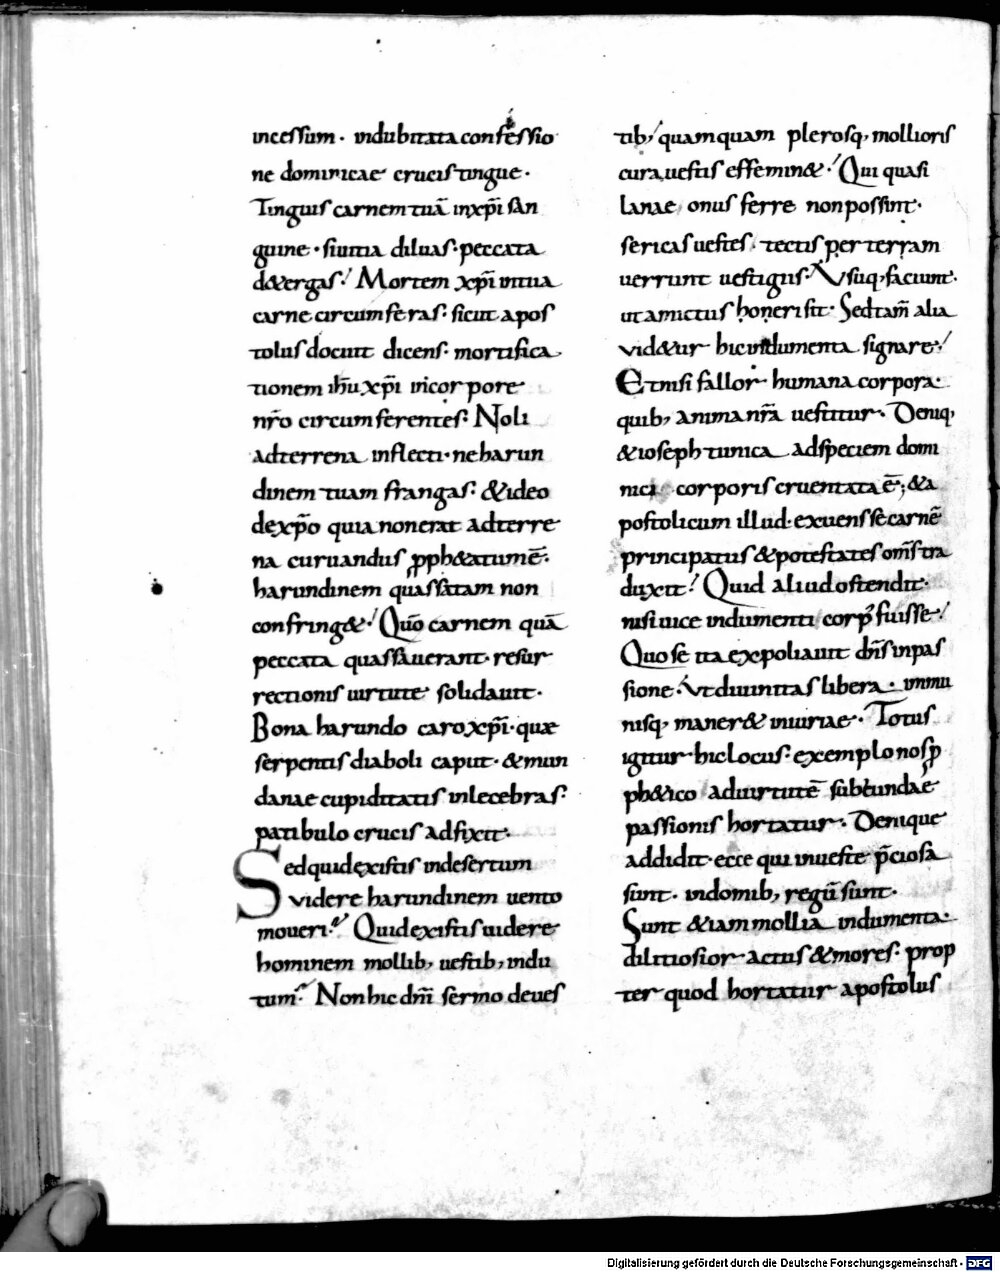 incessum · indubitata confessio
ne dominicae crucis tingue ·
Tinguis carnem tuā in xp̄i san
guine · si uitia diluas · peccata
d&ergas · Mortem xp̄i in tua
carne circumferas · sicut apos
tolus docuit dicens · mortifica
tionem ih̄u xp̄i in corpore
nr̄o circumferentes · Noli
ad terrena inflecti · ne harun
dinem tuam frangas · &ideo
de xp̄o quia non erat ad terre
na curuandus pph&atum ē ·
harundinem quassatam non
confring& · Quō carnem quā
peccata quassauerant · resur
rectionis uirtute solidauit ·
Bona harundo caro xp̄i · quae
serpentis diaboli caput · &mun
danae cupiditatis inlecebras ·
patibulo crucis adfixit ·
Sed quid existis in desertum
videre harundinem uento
moueri · Quid existis uidere
hominem mollib; uestib; indu
tum · Non hic dn̄i sermo de ues
tib; quamquam plerosq; mollioris
cura uestis effemin& · Qui quasi
lanae onus ferre non possint ·
sericas uestes · tectis per terram
uerrunt uestigiis · Vsuq; faciunt ·
ut amictus honeri sit · Sed tam̄ alia
vid&ur hic indumenta signare ·
Et nisi fallor humana corpora ·
quib; anima nr̄a uestitur · Deniq;
&ioseph tunica ad speciem domi
nici corporis cruentata ē; &a
postolicum illud · exuens se carnē
principatus &potestates om̄s tra
duxit · Quid aliud ostendit ·
nisi uice indumenti corp' fuisse ·
Quo se ita expoliauit dn̄s in pas
sione · Vt diuinitas libera · inmu
nisq; maner& iniuriae · Totus
igitur hic locus · exemplo nos p
ph&ico ad uirtutē subeundae
passionis hortatur · Denique
addidit · ecce qui in ueste p̄ciosa
sunt · in domib; regū sunt ·
Sunt &iam mollia indumenta ·
dilitiosior actus &mores · prop
ter quod hortatur apostolus
Digitalisierung gefördert durch die Deutsche Forschungsgemeinschaft - DFG